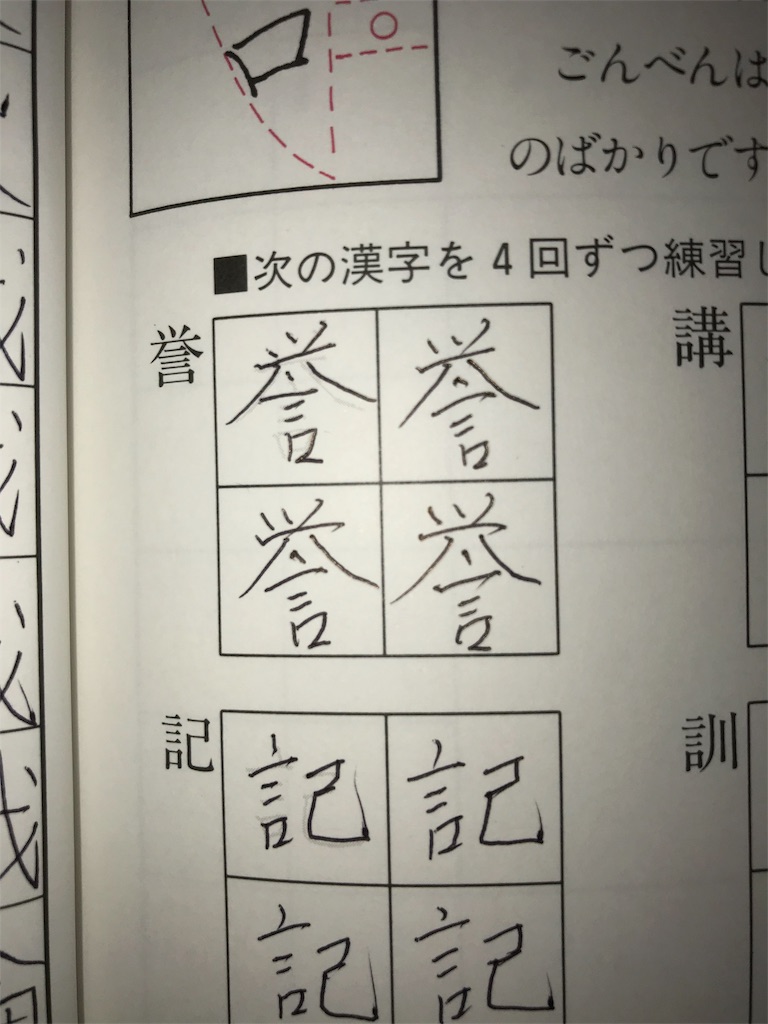 ごんべんは
のばかりです
■次の漢字を4回ずつ練習し
誉 誉 誉 講
誉 誉
記 記 記 訓
記 記